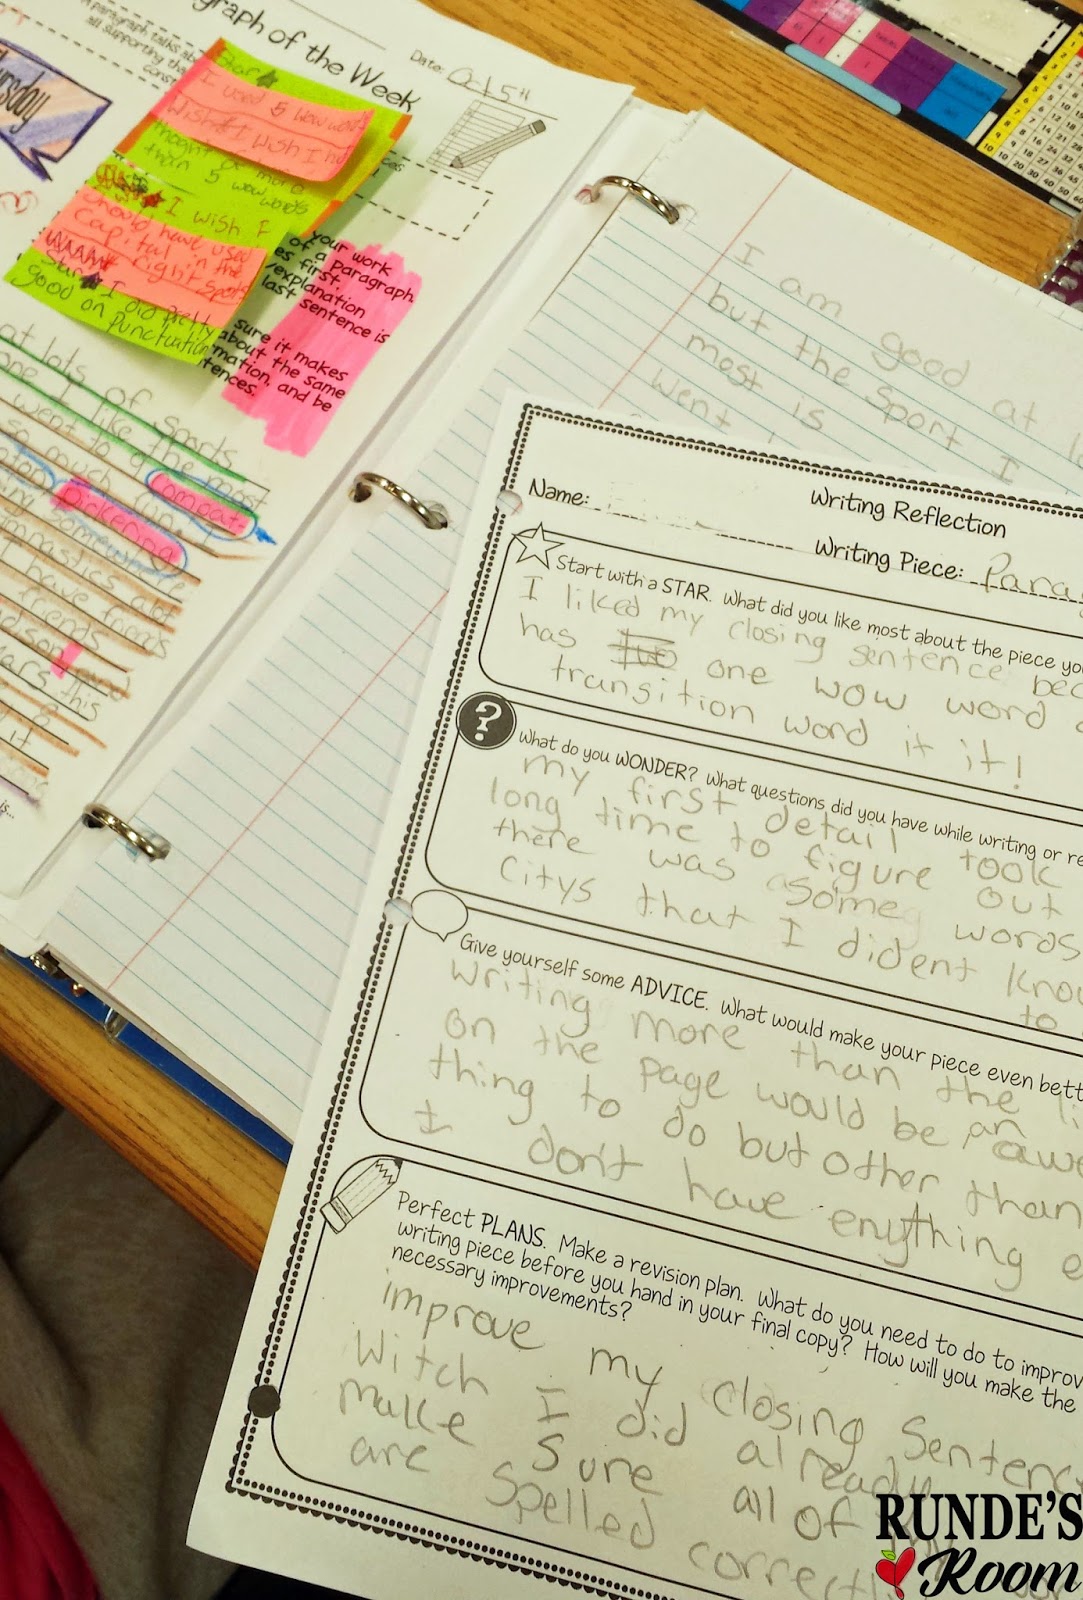 graph of the Week
Date: Oct 5th
A paragraph talks
all supporting
ursday
Star
I used 5 wow
Wish I wish I
more
than 5 wow words
I wish I
should have used
Capital in the
right spots
Star I did pretty
good on Punctuation
your work
of a paragraph.
es first
/explanation
last sentence is
sure it makes
about the same
mation, and be
tences.
lots of sports
I like the most
went to
so much
Pickering
gymnastics alot
I have friends
and
this
it
I am good at
but the sport I
most is
went
Name:
Writing Reflection
Writing Piece: Para
Start with a STAR. What did you like most about the piece yo
I liked my closing sentence bec
has two one wow word
transition word it it!
?
What do you WONDER? What questions did you have while writing or re
my first detail took
long time to figure out
there was some words
Citys that I dident kno
to
Give yourself some ADVICE. What would make your piece even bett
Writing more than the li
on the page would be an awe
thing to do but other than
I don't have enything e
Perfect PLANS. Make a revision plan. What do you need to do to improv
writing piece before you hand in your final copy? How will you make the
necessary improvements?
improve my closing Sentenc
Witch I did already
make sure all of my
are spelled correctl
RUNDE'S
Room